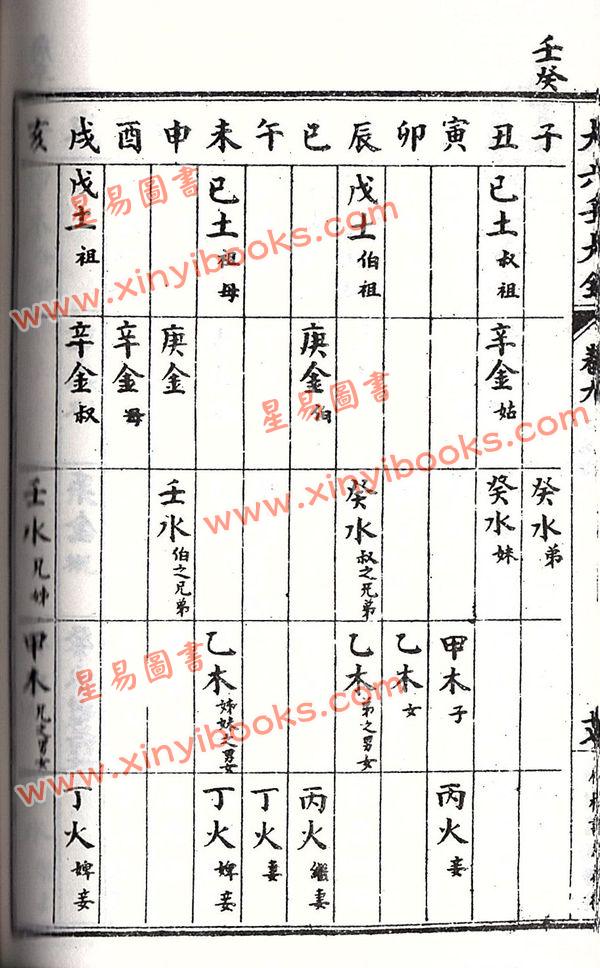 壬癸
大六壬大全
卷九
子
癸水弟
丑
己土叔祖
辛金姑
癸水妹
寅
甲木子
丙火妾
卯
乙木女
辰
戊土伯祖
癸水叔之兄弟
乙木弟之男女
巳
庚金伯
丙火繼妻
午
丁火妻
未
己土祖母
乙木姊妹之男女
丁火婢妾
申
庚金
壬水伯之兄弟
酉
辛金母
戌
戊土祖
辛金叔
丁火婢妾
亥
壬水兄姊
甲木兄之男女
星易圖書
www.xinyibooks.com
星易圖書
www.xinyibooks.com
星易圖書
www.xinyibooks.com